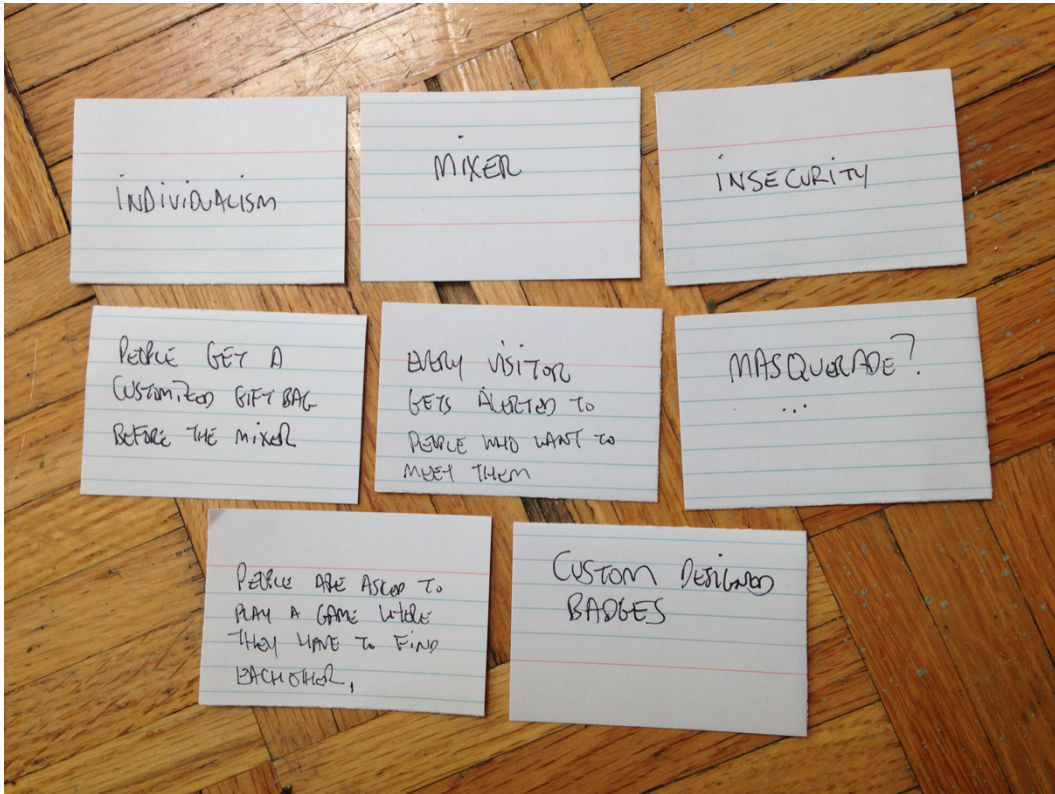 INDIVIDUALISM
MIXER
INSECURITY
PEOPLE GET A
CUSTOMIZED GIFT BAG
BEFORE THE MIXER
EVERY VISITOR
GETS ALERTED TO
PEOPLE WHO WANT TO
MEET THEM
MASQUERADE?
...
PEOPLE ARE ASKED TO
PLAY A GAME WHERE
THEY HAVE TO FIND
EACHOTHER,
CUSTOM DESIGNED
BADGES